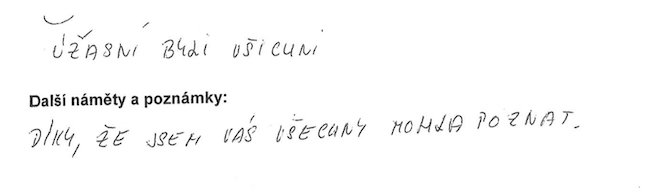 ÚŽASNÍ BYLI VŠICHNI
Další náměty a poznámky:
DÍKY, ŽE JSEM VÁS VŠECHNY MOHLA POZNAT.